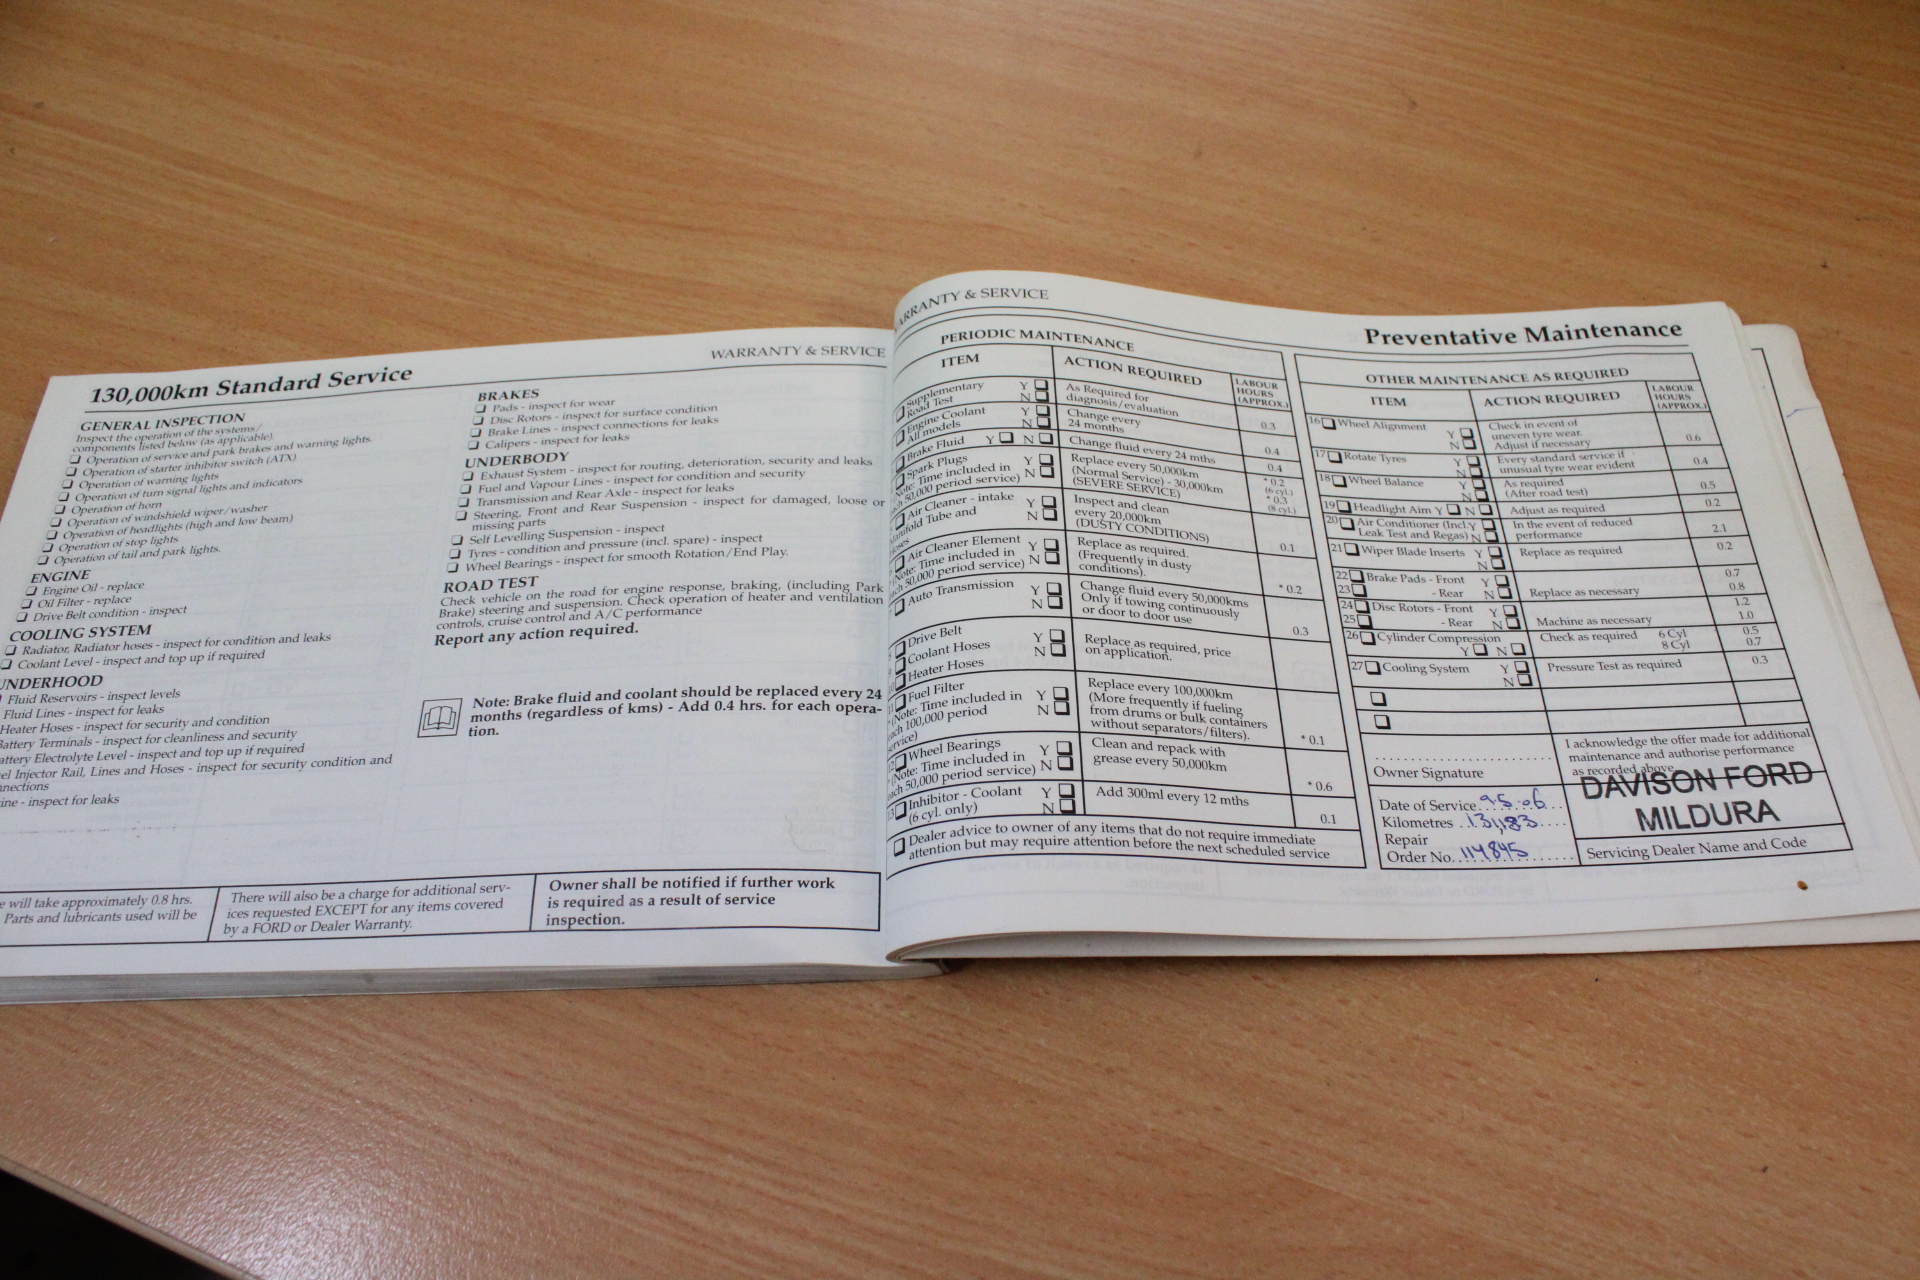 WARRANTY & SERVICE
130,000km Standard Service
GENERAL INSPECTION
Inspect the operation of the systems/
components listed below (as applicable).
Operation of service and park brakes and warning lights.
Operation of starter inhibitor switch (ATX)
Operation of warning lights
Operation of turn signal lights and indicators
Operation of horn
Operation of windshield wiper/washer
Operation of headlights (high and low beam)
Operation of stop lights
Operation of tail and park lights.
ENGINE
Engine Oil - replace
Oil Filter - replace
Drive Belt condition - inspect
COOLING SYSTEM
Radiator, Radiator hoses - inspect for condition and leaks
Coolant Level - inspect and top up if required
UNDERHOOD
Fluid Reservoirs - inspect levels
Fluid Lines - inspect for leaks
Heater Hoses - inspect for security and condition
attery Terminals - inspect for cleanliness and security
attery Electrolyte Level - inspect and top up if required
el Injector Rail, Lines and Hoses - inspect for security condition and
nnections
ine - inspect for leaks
BRAKES
Pads - inspect for wear
Disc Rotors - inspect for surface condition
Brake Lines - inspect connections for leaks
Calipers - inspect for leaks
UNDERBODY
Exhaust System - inspect for routing, deterioration, security and leaks
Fuel and Vapour Lines - inspect for condition and security
Transmission and Rear Axle - inspect for leaks
Steering, Front and Rear Suspension - inspect for damaged, loose or
missing parts
Self Levelling Suspension - inspect
Tyres - condition and pressure (incl. spare) - inspect
Wheel Bearings - inspect for smooth Rotation/End Play.
ROAD TEST
Check vehicle on the road for engine response, braking, (including Park
Brake) steering and suspension. Check operation of heater and ventilation
controls, cruise control and A/C performance
Report any action required.
Note: Brake fluid and coolant should be replaced every 24
months (regardless of kms) - Add 0.4 hrs. for each opera-
tion.
e will take approximately 0.8 hrs.
Parts and lubricants used will be
There will also be a charge for additional serv-
ices requested EXCEPT for any items covered
by a FORD or Dealer Warranty.
Owner shall be notified if further work
is required as a result of service
inspection.
ARRANTY & SERVICE
Preventative Maintenance
PERIODIC MAINTENANCE
ITEM ACTION REQUIRED LABOUR
HOURS
(APPROX.)
Supplementary Y As Required for
Road Test N diagnosis/evaluation
Engine Coolant Y Change every
All models N 24 months 0.3
Brake Fluid Y N Change fluid every 24 mths 0.4
Spark Plugs Y Replace every 50,000km 0.4
(Note: Time included in N (Normal Service) - 30,000km * 0.2
ch 50,000 period service) (SEVERE SERVICE) (6 cyl.)
* 0.3
(8 cyl.)
Air Cleaner - intake Y Inspect and clean
anifold Tube and N every 20,000km
Hoses (DUSTY CONDITIONS) 0.1
Air Cleaner Element Y Replace as required.
(Note: Time included in N (Frequently in dusty
ach 50,000 period service) conditions). * 0.2
Auto Transmission Y Change fluid every 50,000kms
N Only if towing continuously
or door to door use 0.3
Drive Belt Y Replace as required, price
Coolant Hoses N on application.
Heater Hoses
Fuel Filter Y Replace every 100,000km
(Note: Time included in N (More frequently if fueling
ach 100,000 period from drums or bulk containers
service) without separators/filters). * 0.1
Wheel Bearings Y Clean and repack with
(Note: Time included in N grease every 50,000km
ach 50,000 period service) * 0.6
Inhibitor - Coolant Y Add 300ml every 12 mths
(6 cyl. only) N 0.1
Dealer advice to owner of any items that do not require immediate
attention but may require attention before the next scheduled service
OTHER MAINTENANCE AS REQUIRED
ITEM ACTION REQUIRED LABOUR
HOURS
(APPROX.)
16 Wheel Alignment Y Check in event of
N uneven tyre wear.
Adjust if necessary 0.6
17 Rotate Tyres Y Every standard service if
N unusual tyre wear evident 0.4
18 Wheel Balance Y As required
N (After road test) 0.5
19 Headlight Aim Y N Adjust as required 0.2
20 Air Conditioner (Incl Y In the event of reduced
Leak Test and Regas) N performance 2.1
21 Wiper Blade Inserts Y Replace as required 0.2
N
22 Brake Pads - Front Y 0.7
23 - Rear N Replace as necessary 0.8
24 Disc Rotors - Front Y 1.2
25 - Rear N Machine as necessary 1.0
26 Cylinder Compression Check as required 6 Cyl 0.5
Y N 8 Cyl 0.7
27 Cooling System Y Pressure Test as required 0.3
N
Owner Signature
I acknowledge the offer made for additional
maintenance and authorise performance
as recorded above
DAVISON FORD
MILDURA
Date of Service 9.5.06
Kilometres 131,183
Repair
Order No. 114845
Servicing Dealer Name and Code